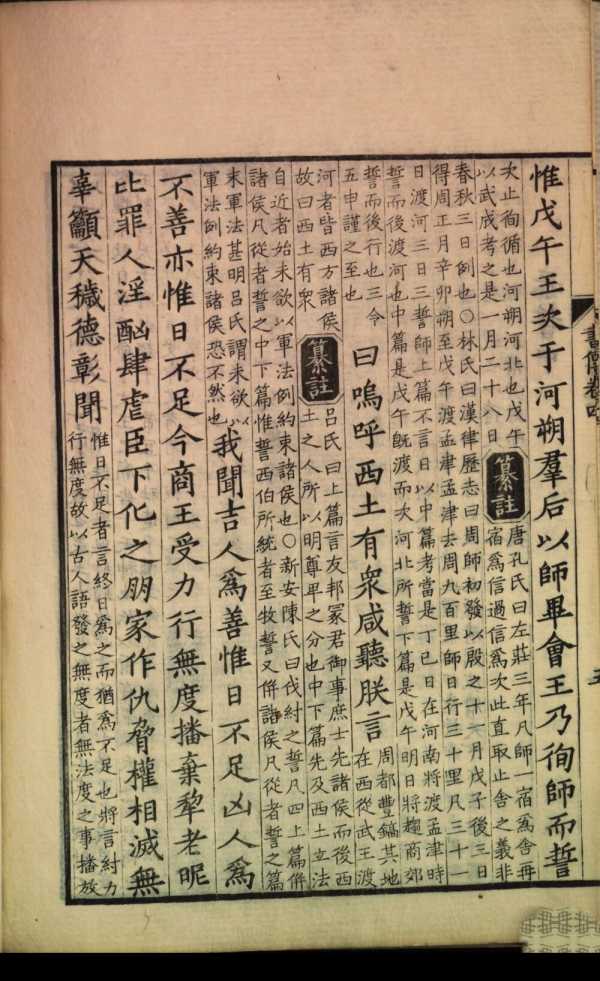 惟戊午王次于河朔羣后以師畢會王乃徇師而誓
次止徇循也河朔河北也戊午
以武成考之是一月二十八日
纂註
唐孔氏曰左莊三年凡師一宿爲舍再
宿爲信過信爲次此直取止舍之義非
春秋三日例也○林氏曰漢律歷志曰周師初發以殷之十一月戊子後三日
得周正月辛卯朔至戊午渡孟津孟津去周九百里師日行三十里凡三十一
日渡河三日三誓師上篇不言日以中篇考當是丁巳日在河南將渡孟津時
誓而後渡河也中篇是戊午旣渡而次河北所誓下篇是戊午明日將趨商郊
誓而後行也三令
五申謹之至也
曰嗚呼西土有衆咸聽朕言
周都豐鎬其地
在西從武王渡
河者皆西方諸侯
故曰西土有衆
纂註
呂氏曰上篇言友邦冢君御事庶士先諸侯而後西
土之人所以明尊卑之分也中下篇先及西土立法
自近者始未欲以軍法例約束諸侯也○新安陳氏曰伐紂之誓凡四上篇併
諸侯凡從者誓之中下篇惟誓西伯所統者至牧誓又併諸侯凡從者誓之篇
末軍法甚明呂氏謂未欲以
軍法例約束諸侯恐不然也
我聞吉人爲善惟日不足凶人爲
不善亦惟日不足今商王受力行無度播棄犂老昵
比罪人淫酗肆虐臣下化之朋家作仇脅權相滅無
辜籲天穢德彰聞
惟日不足者言終日爲之而猶爲不足也將言紂力
行無度故以古人語發之無度者無法度之事播放
書傳卷